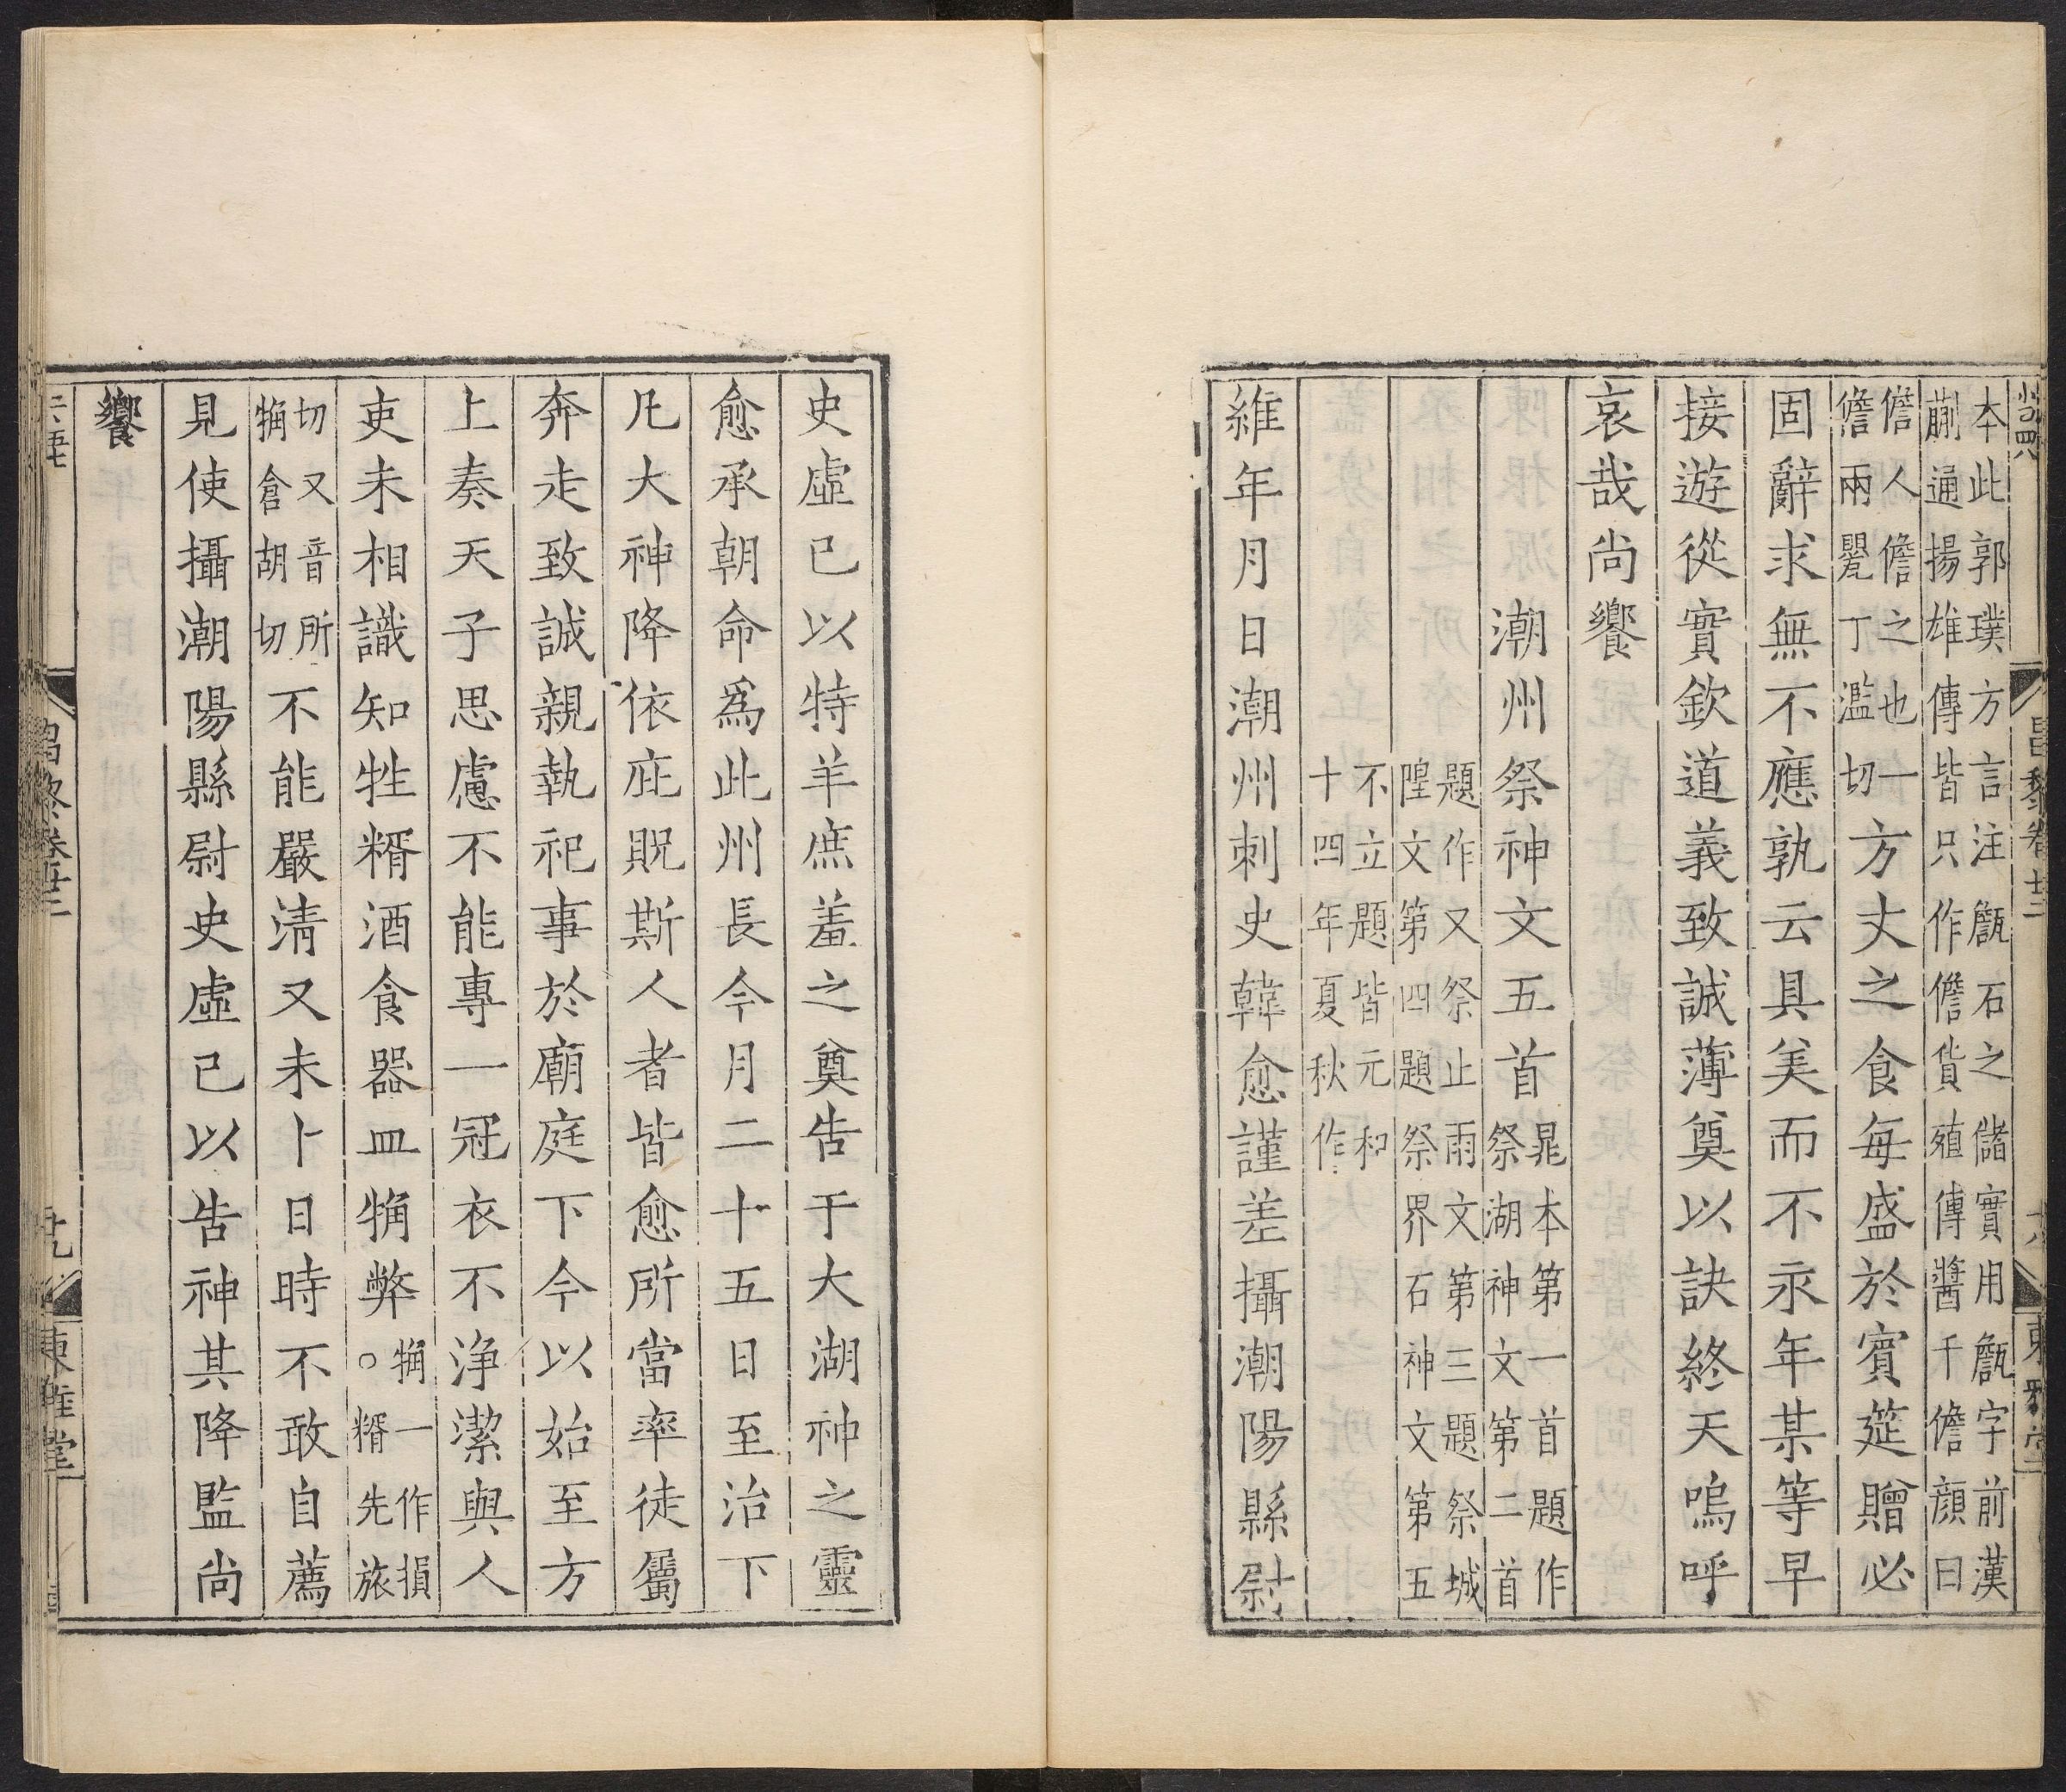 本此郭璞方言注甔石之儲實用甔字前漢
蒯通揚雄傳皆只作儋貨殖傳醬千儋顔曰
儋人儋之也一
儋兩甖丁濫切方丈之食每盛於賓筵贈必
固辭求無不應孰云具美而不永年某等早
接遊從實欽道義致誠薄奠以訣終天嗚呼
哀哉尚饗
潮州祭神文五首晁本第一首題作
祭湖神文第二首
題作又祭止雨文第三題祭城
隍文第四題祭界石神文第五
不立題皆元和
十四年夏秋作
維年月日潮州刺史韓愈謹差攝潮陽縣尉
史虛己以特羊庶羞之奠告于大湖神之靈
愈承朝命爲此州長今月二十五日至治下
凡大神降依庇貺斯人者皆愈所當率徒屬
奔走致誠親執祀事於廟庭下今以始至方
上奏天子思慮不能專一冠衣不淨潔與人
吏未相識知牲糈酒食器皿觕弊觕一作損
○糈先旅
切又音所
觕倉胡切不能嚴清又未卜日時不敢自薦
見使攝潮陽縣尉史虛己以告神其降監尚
饗
昌黎卷廿二
東雅堂